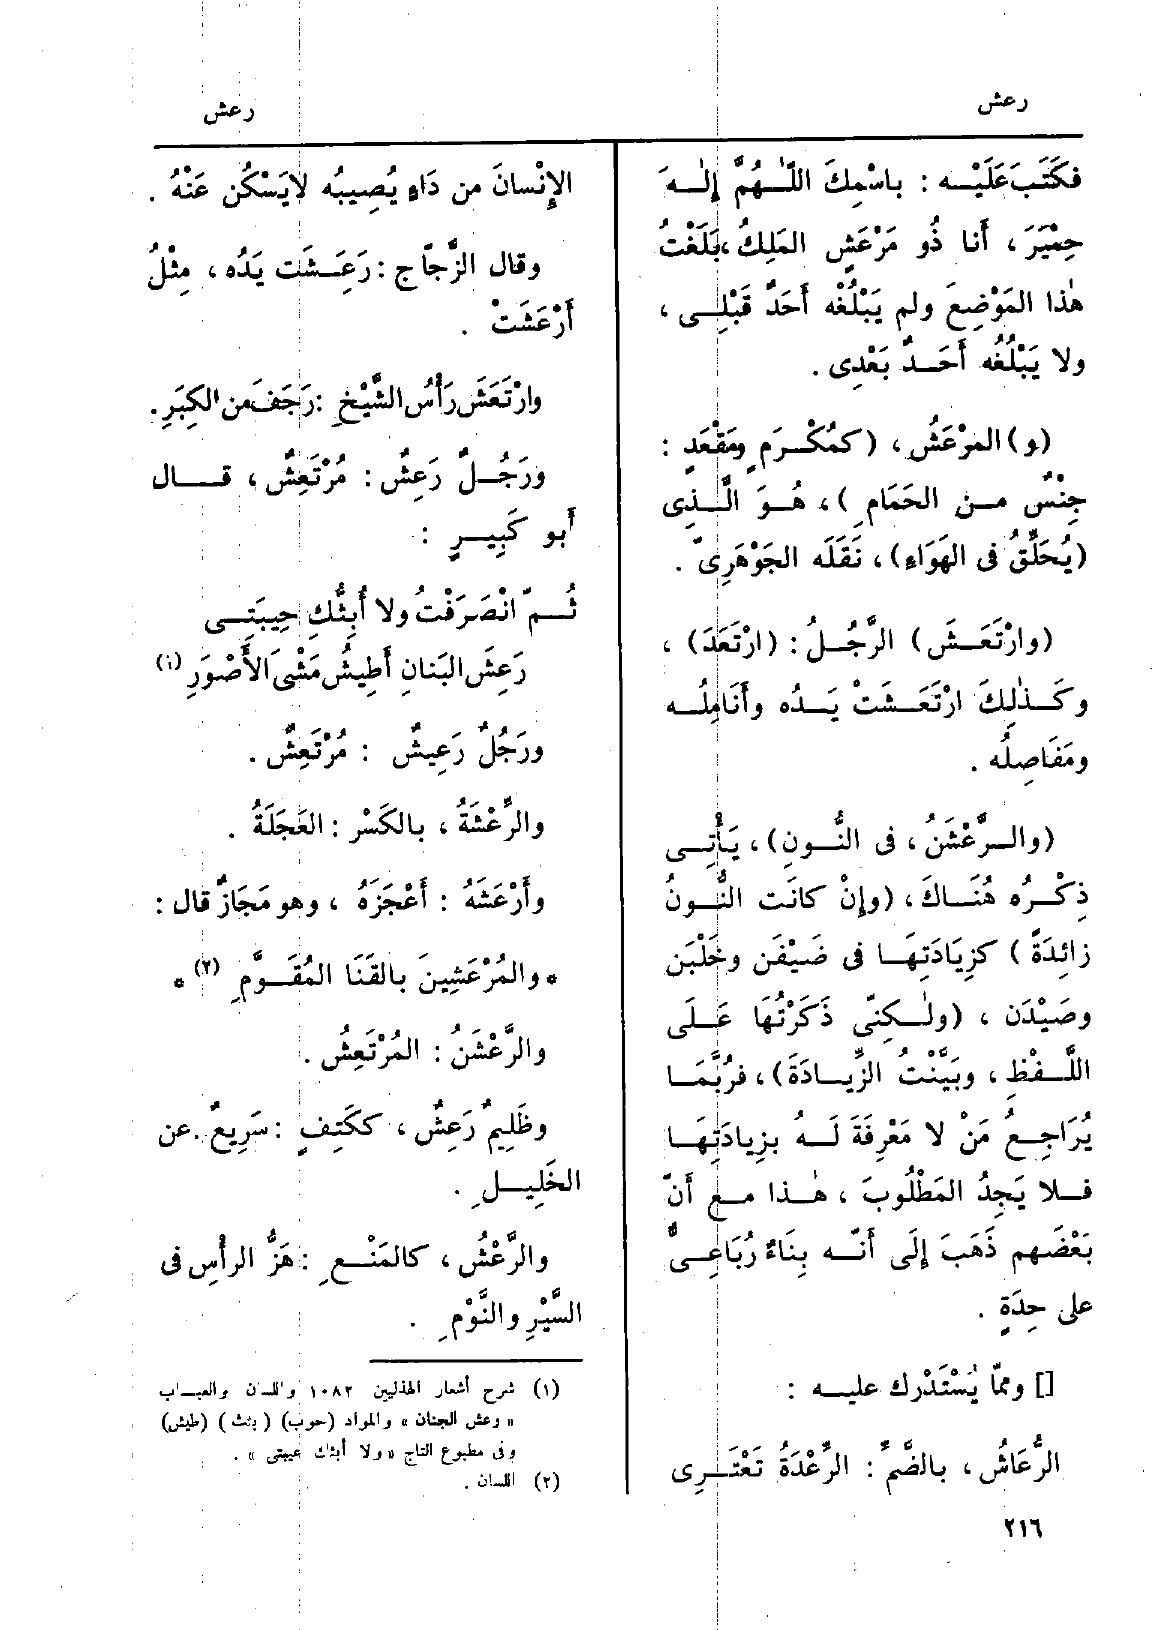 رعش
رعش
فكَتَبَ عَلَيْـه : باسْمِكَ اللّٰهُمَّ إِلٰـهَ
حِمْيَرَ ، أَنا ذُو مَرْعَشٍ المَلِكُ ، بَلَغْتُ
هٰذا المَوْضِعَ ولم يَبْلُغْه أَحَدٌ قَبْلِـى ،
ولا يَبْلُغُه أَحَـدٌ بَعْدِى .
(و) المرْعَشُ ، (كمُكْـرَمٍ ومَقْعَدٍ :
جِنْسٌ مـن الحَمَامِ ) ، هُـوَ الَّـذِى
(يُحَلِّقُ فى الهَوَاءِ) ، نَقَلَه الجَوْهَرِىّ .
(وارْتَعَـشَ) الرَّجُـلُ : (ارْتَعَدَ) ،
وكَـذٰلِكَ ارْتَعَـشَتْ يَـدُه وأَنَامِلُـه
ومَفَاصِلُه .
(والـرَّعْشَنُ ، فى النُّـونِ) ، يَأْتِـى
ذِكْـرُه هُنَـاكَ ، (وإِنْ كانَت النُّـونُ
زائِدَةً ) كزِيَادَتِهَـا فى ضَيْفَن وخَلْبَن
وصَيْدَن ، (ولٰـكِنِّى ذَكَرْتُهَا عَـلَى
اللَّـفْظِ ، وبَيَّنْتُ الزِّيـادَةَ) ، فرُبَّمَـا
يُرَاجِـعُ مَنْ لا مَعْرِفَةَ لَـهُ بزِيادَتِهَـا
فـلا يَجِدُ المَطْلُوبَ ، هٰـذا مـع أَنّ
بَعْضَهم ذَهَبَ إِلَى أَنّـه بِنَاءٌ رُبَاعِـىٌّ
على حِدَةٍ .
[] وممّا يُسْتَدْرك عليـه :
الرُّعَاشُ ، بالضَّمِّ : الرِّعْدَةُ تَعْتَـرِى
٢١٦
الإِنْسانَ من دَاءٍ يُصِيبُه لايَسْكُن عَنْهُ .
وقال الزَّجّاج : رَعِـشَت يَدُه ، مِثْلُ
أَرْعَشَتْ .
وارْتَعَشَ رَأْسُ الشَّيْخِ : رَجَفَ من الكِبَرِ .
ورَجُـلٌ رَعِشٌ : مُرْتَعِشٌ ، قـال
أَبو كَبِيـرٍ :
ثُـمّ انْصَرَفْتُ ولا أَبِثُّكِ حِيبَتِـى
رَعِشَ البَنانِ أَطِيشُ مَشْىَ الأَصْوَرِ (١)
ورَجُلٌ رَعِيشٌ : مُرْتَعِشٌ .
والرِّعْشَةُ ، بالكَسْرِ : العَجَلَةُ .
وأَرْعَشَهُ : أَعْجَزَهُ ، وهو مَجَازٌ قال :
* والمُرْعَشِينَ بالقَنَا المُقَـوَّمِ (٢) *
والرَّعْشَنُ : المُرْتَعِشُ .
وظَلِيمٌ رَعِشٌ ، ككَتِفٍ : سَرِيعٌ . عن
الخَلِيـلِ .
والرَّعْشُ ، كالمَنْـعِ : هَزُّ الرأْسِ فى
السَّيْرِ والنَّوْمِ .
(١) شرح أشعار الهذليين ١٠٨٢ واللسان والعبـاب
« رعش الجنان » والمواد (حوب) (بثث) (طيش)
وفى مطبوع التاج « ولا أبثك عيبتى » .
(٢) اللسان .